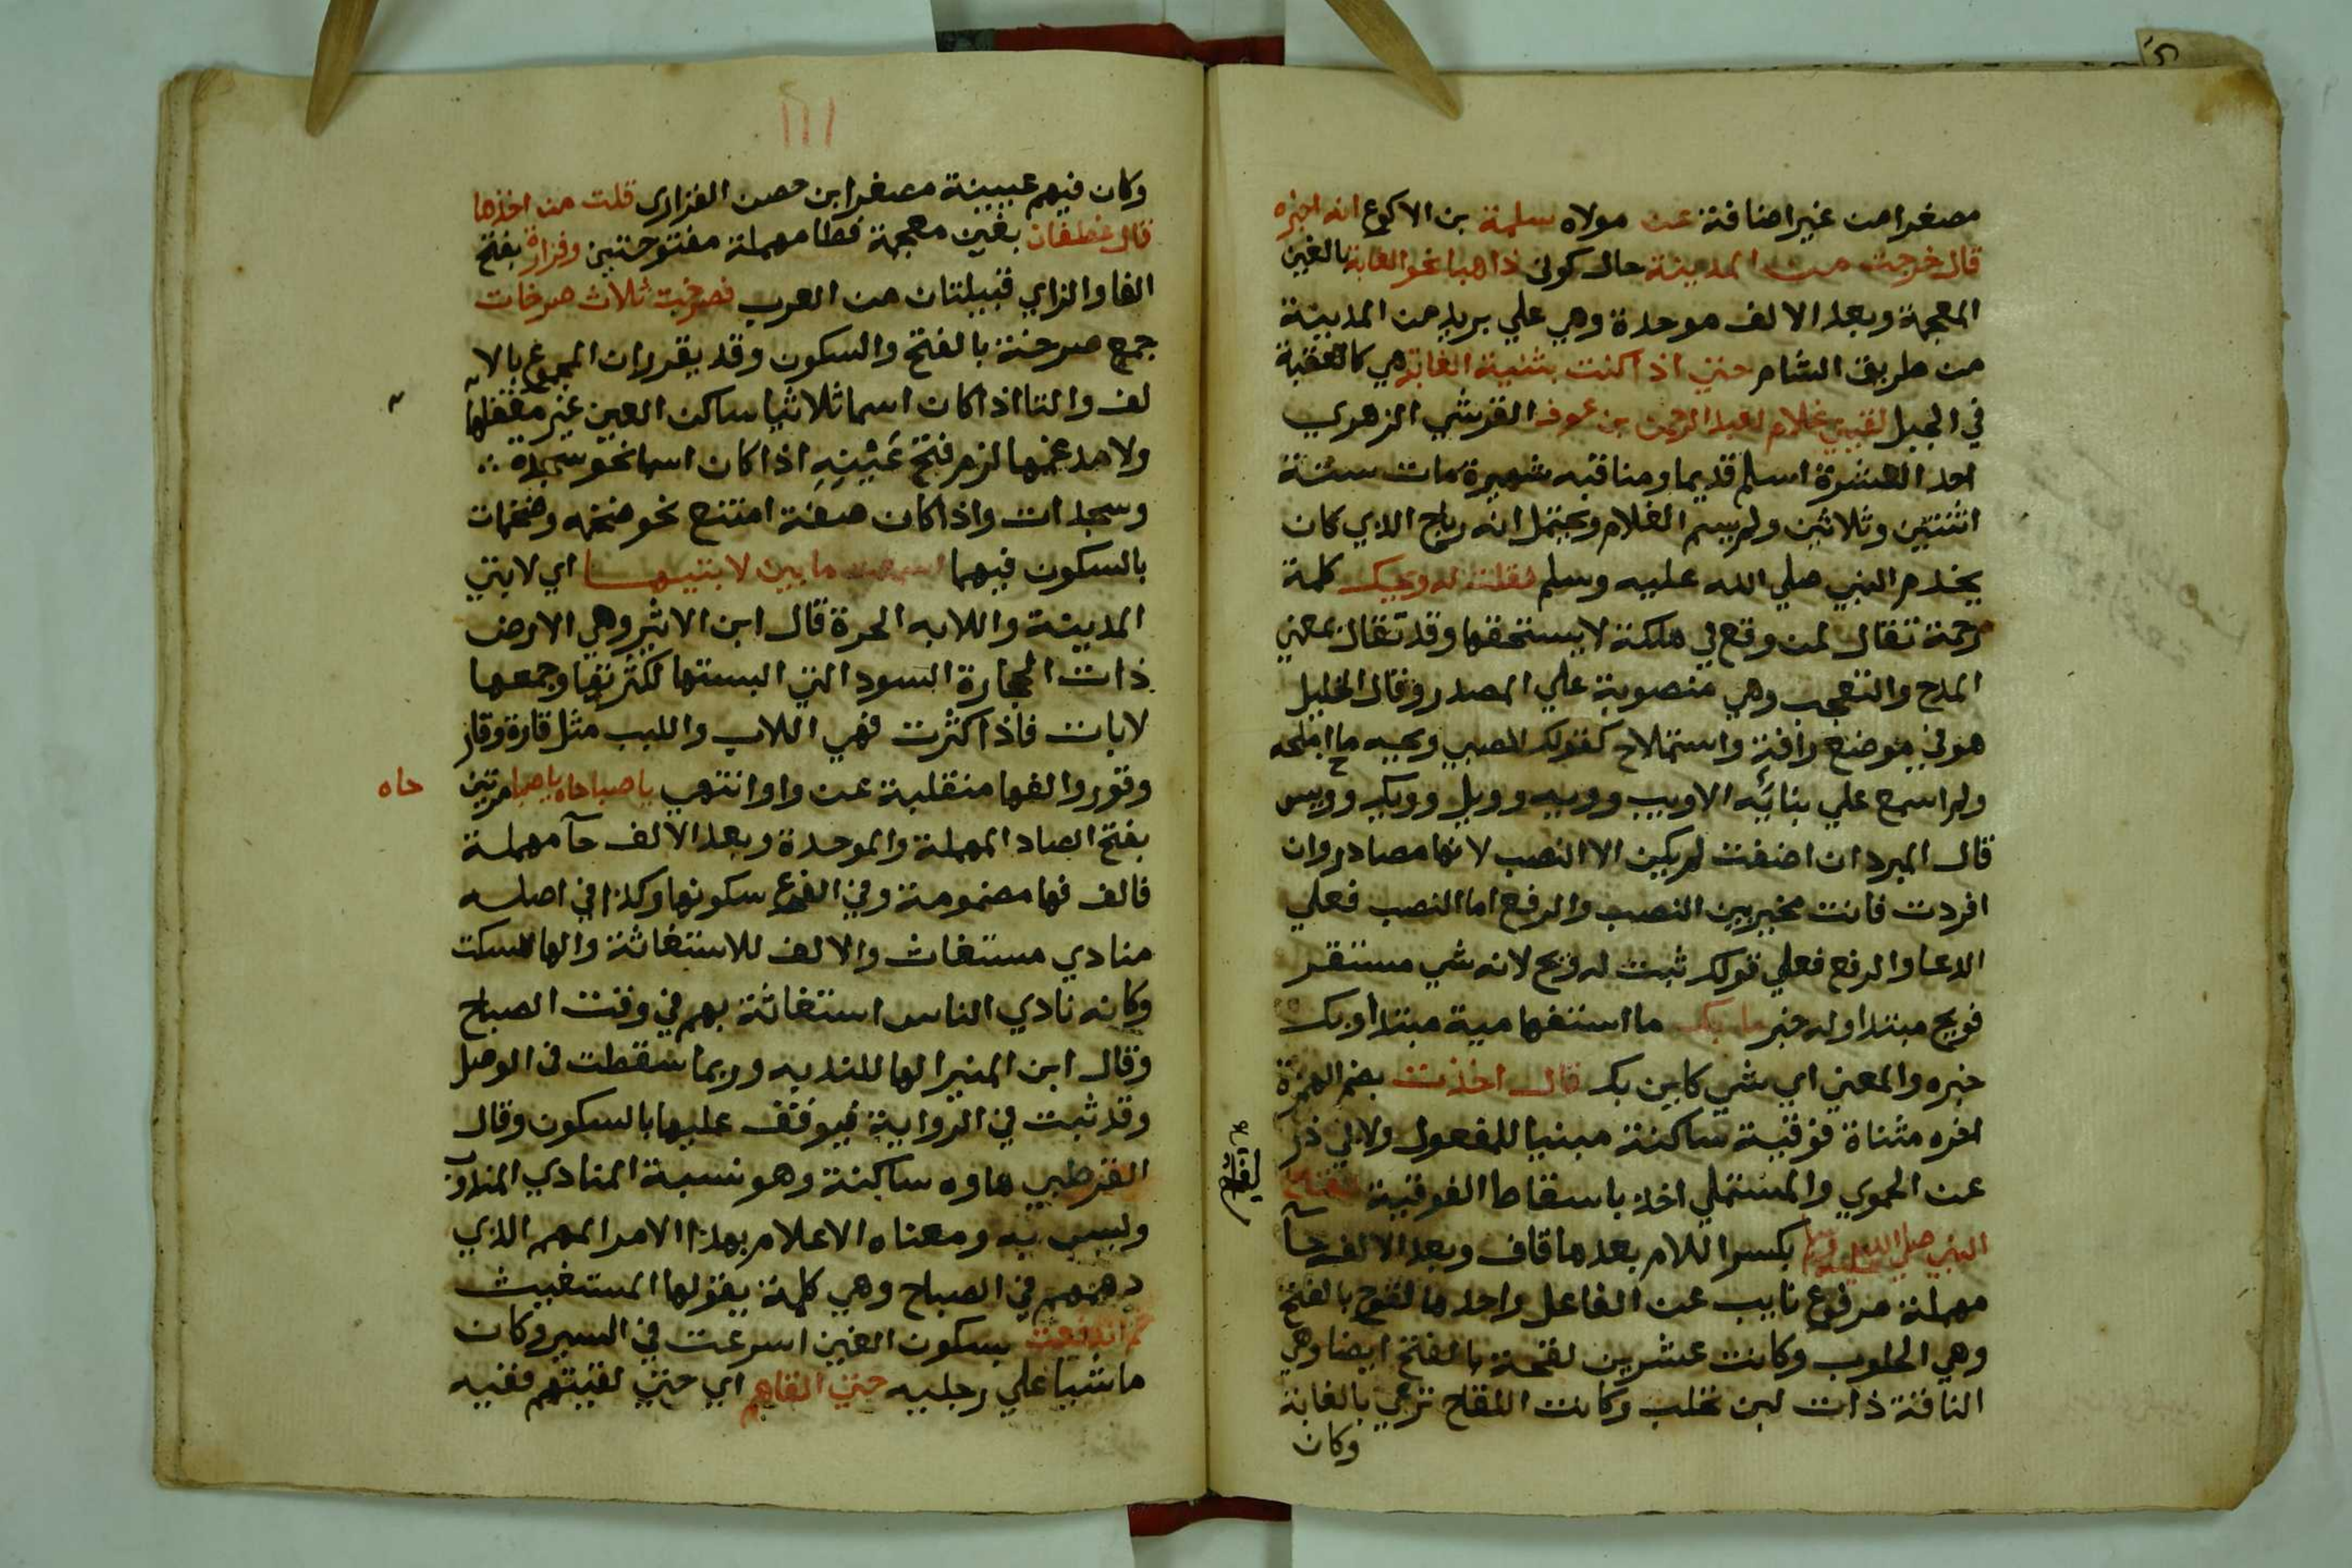 مصغرا من غير اضافة عن مولاه سلمة بن الاكوع انه اخبره
قال خرجت من المدينة حال كوني ذاهبا نحو الغابة بالغين
المعجمة وبعد الالف موحدة وهي علي بريد من المدينة
من طريق الشام حتي اذا كنت بثنية الغابة هي كالعقبة
في الجبل لقيني غلام لعبد الرحمن بن عوف القرشي الزهري
احد العشرة اسلم قديما ومناقبه شهيرة مات سنة
اثنتين وثلاثين ولم يسم الغلام ويحتمل انه رباح الذي كان
يخدم النبي صلي الله عليه وسلم فقلت له ويحك كلمة
رحمة تقال لمن وقع في هلكة لا يستحقها وقد تقال بمعني
المدح والتعجب وهي منصوبة علي المصدر وقال الخليل
هو في موضع رافة واستملاح كقولك للصبي ويحه ما املحه
ولم اسمع علي بنائه الا ويب وويه وويل وويك وويس
قال المبرد ان اضفت لم يكن الا النصب لانها مصادر وان
افردت فانت مخير بين النصب والرفع اما النصب فعلي
الدعا والرفع فعلي قولك ثبت له ويح لانه شي مستقر
فويح مبتدا وله خبر ما بك ما استفهامية مبتدا وبك
خبره والمعني اي شي كاين بك قال اخذت بضم الهمزة
اخره مثناة فوقية ساكنة مبنيا للمفعول ولابي ذر
عن الحموي والمستملي اخذ باسقاط الفوقية لقاح
النبي صلي الله عليه وسلم بكسر اللام بعدها قاف وبعد الالف حآ
مهملة مرفوع نايب عن الفاعل واحدها لقوح بالفتح
وهي الحلوب وكانت عشرين لقحة بالفتح ايضا وهي
الناقة ذات لبن تحلب وكانت اللقاح ترعي بالغابة
وكان
وكان فيهم عيينة مصغرا بن حصن الفزاري قلت من اخذها
قال غطفان بغين معجمة فطا مهملة مفتوحتين وفزارة بفتح
الفا والزاي قبيلتان من العرب فصرخت ثلاث صرخات
جمع صرخة بالفتح والسكون وقد يقرر ان المجموع بالا
لف والتا اذا كان اسما ثلاثيا ساكن العين غير
ولا مدغمها لزم فتح عينه اذا كان اسما نحو سجدة
وسجدات واذا كان صفة امتنع نحو ضخمه وضخمات
بالسكون فيهما اسمعت ما بين لابتيها اي لابتي
المدينة واللابه الحرة قال ابن الاثير وهي الارض
ذات الحجارة السود التي البستها لكثرتها وجمعها
لابات فاذا كثرت فهي اللاب واللبب مثل قارة وقار
وقور والفها منقلبة عن واو انتهي يا صباحاه يا صبا مرتين
حاه
بفتح الصاد المهملة والموحدة وبعد الالف حآ مهملة
فالف فها مضمومة وفي الفرع سكونها وكذا في اصله
منادي مستغاث والالف للاستغاثة والها للسكت
وكانه نادي الناس استغاثة بهم في وقت الصباح
وقال ابن المنير الها للندبه وربما سقطت في الوصل
وقد ثبت في الرواية فيوقف عليها بالسكون وقال
القرطبي هاوه ساكنة وهو نسبة المنادي المندوب
وليس به ومعناه الاعلام بهذا الامر المهم الذي
دهمهم في الصباح وهي كلمة يقولها المستغيث
ثم اندفعت بسكون العين اسرعت في السير وكان
ماشيا علي رجليه حتي القاهم اي حتي لقيتهم ففيه